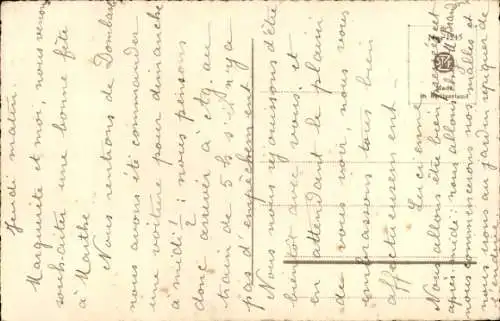 Jeudi matin.
Marguerite et moi, nous venons
souhaiter une bonne fête
à Marthe
Nous rentions de Dombas
nous avons été commander
une voiture pour dimanche
à midi! nous pensons
donc arriver à Ctg. au
train de 5 h s'il n'y a
pas d'empêchement
Nous nous réjouissons d'être
bientôt avec vous, et
en attendant le plaisir
de vous voir, nous vous
embrassons tous bien
affectueusement -
Lucienne
Nous allons être bien et
après-midi; nous allons M. Brand
nous commencerons nos malles et
nous irons au jardin
Made
in Switzerland